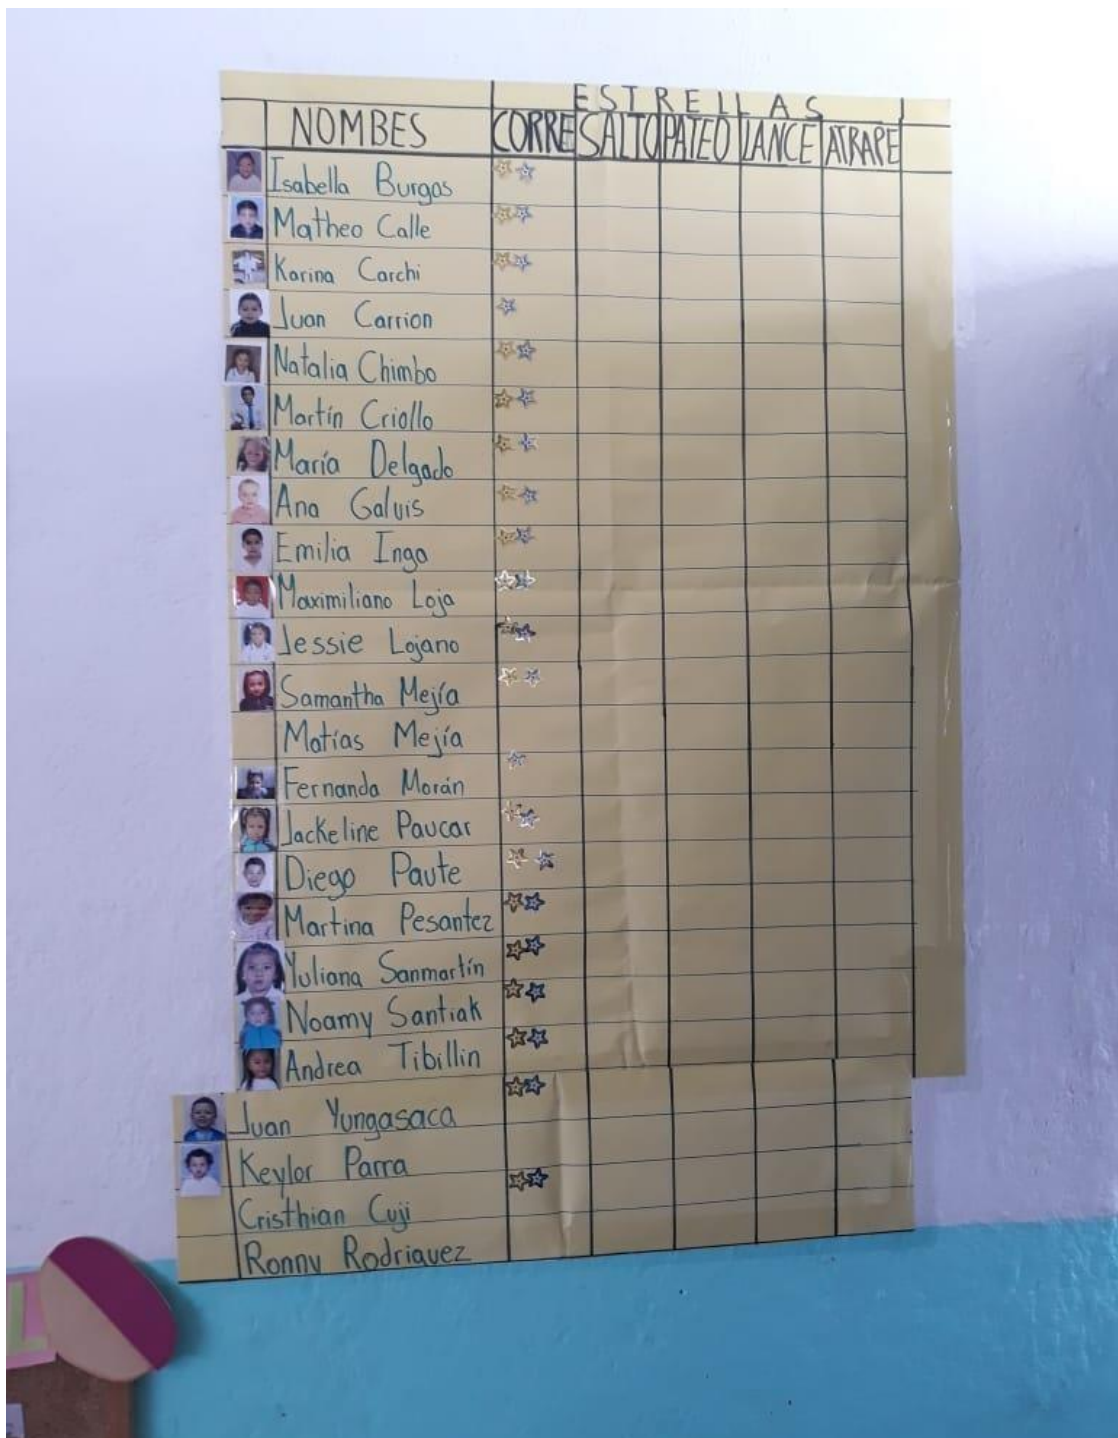 ESTRELLAS
NOMBES CORRE SALTO PATEO LANCE ATRAPE
Isabella Burgos
Matheo Calle
Karina Carchi
Juan Carrion
Natalia Chimbo
Martín Criollo
María Delgado
Ana Galvis
Emilia Inga
Maximiliano Loja
Jessie Lojano
Samantha Mejía
Matías Mejía
Fernanda Morán
Jackeline Paucar
Diego Paute
Martina Pesantez
Yuliana Sanmartín
Noamy Santiak
Andrea Tibillin
Juan Yungasaca
Keylor Parra
Cristhian Cuji
Ronny Rodriguez